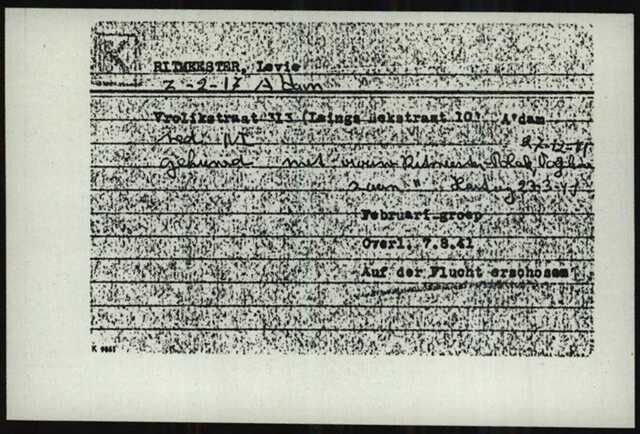 K
RITMEESTER, Levie
2-2-17 A'dam
Vrolikstraat 313 (Laings Nekstraat 10) A'dam
ned. N.I. 27-12-
gehuwd met vrouw Ritmeester-
zoon " Hartog 23-3-41
Februari-groep
Overl. 7.8.41
Auf der Flucht erschosen
K